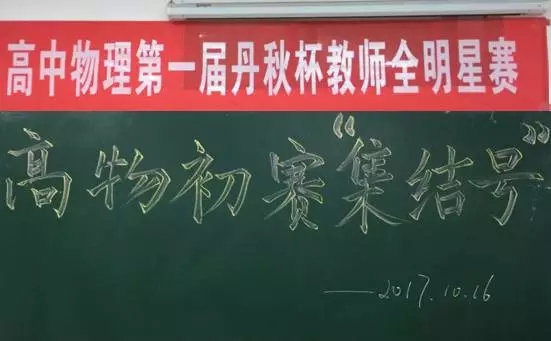 高中物理第一届丹秋杯教师全明星赛
高物初赛“集结号”
——2017.10.16